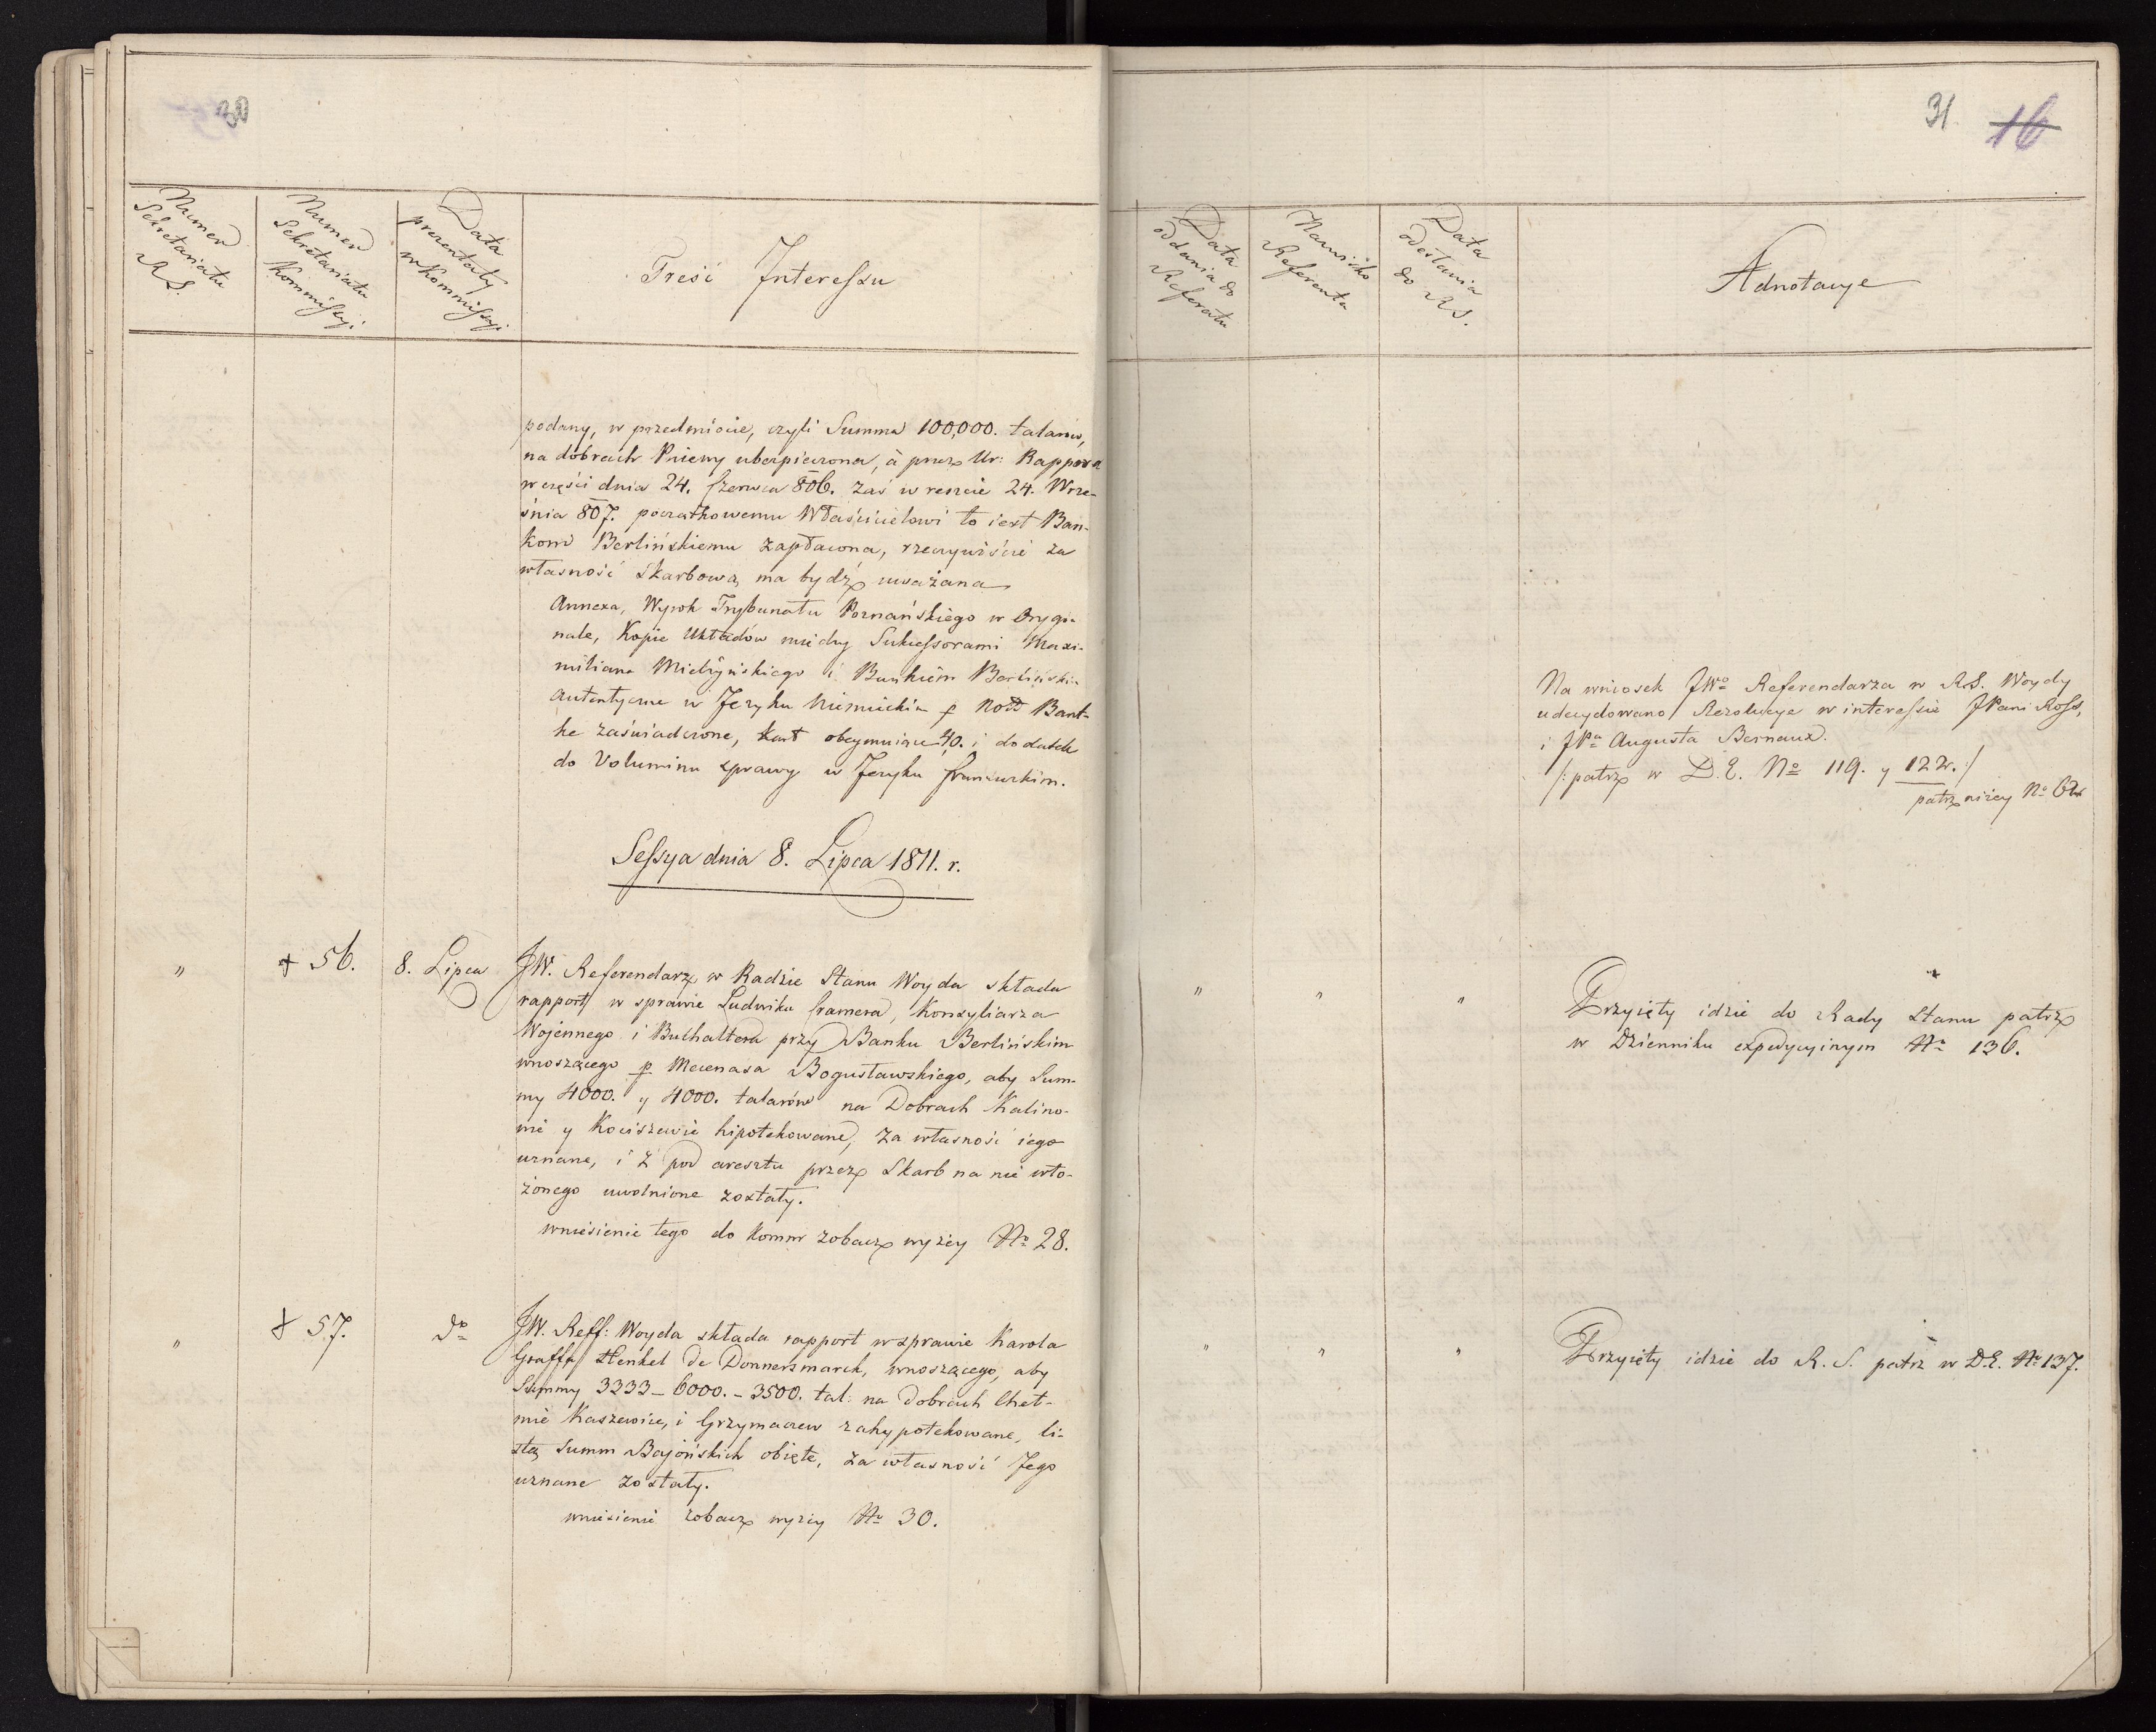 30
Numer
Sekretariatu
RS.
Numer
Sekretariatu
Kommissyi
Data
prezentaty
w Kommissyi
Treść Interessu
podany, w przedmiocie, czyli Summa 100,000. talarów,
na dobrach Pniewy ubespieczona, à przez Ur: Rappard
w części dnia 24. Czerwca 806. zaś w reszcie 24. Wrze-
śnia 807. początkowemu Właścicielowi to iest Ban-
kowi Berlińskiemu zapłacona, rzeczywiście za
własność Skarbową ma bydź uważana
Annexa, Wyrok Trybunału Poznańskiego w Orygi-
nale, Kopie Układów między Sukcessorami Maxi-
miliana Mielżyńskiego i Bankiem Berlińskim
autentyczne w Jeryku Niemieckim p Nott Bant-
ke zaświadczone, kart obeymuiące 40. i dodatek
do Voluminu sprawy w Jeryku francuzkim.
Sessya dnia 8. Lipca 1811. r.
" + 56. 8. Lipca
JW. Referendarz w Radzie Stanu Woyda składa
rapport w sprawie Ludwika Cramera, Konsyliarza
Wojennego i Buchaltera przy Banku Berlińskim
wnoszącego p. Mecenasa Bogusławskiego, aby Sum-
my 4000. y 4000. talarów na Dobrach Kalino-
wie y Kociszewie hipotekowane, za własność iego
uznane, i z pod aresztu przez Skarb na nie wło-
żonego uwolnione zostały.
wniesienie tego do Komm zobacz wyżey No 28.
" + 57. do
JW. Reff: Woyda składa rapport w sprawie Karola
Graffa Henkel de Donnersmarck, wnoszącego, aby
Summy 3233 – 6000. – 3500. tal: na Dobrach Cheł-
mie Kaszewice, i Grzymaczew zahypotekowane, li-
stą Summ Bajońskich obięte, za własność Jego
uznane zostały.
wniesienie zobacz wyżey No 30.
31 16
Data
oddania do
Referatu
Nazwisko
Referenta
Data
odesłania
do RS.
Adnotacye
Na wniosek JWo Referendarza w R.S. Woydy
udecydowano Rezolucye w interessie JPani Ross,
i JPa Augusta Bernaux.
/: patrz w D.E. No 119. y 122. :/
patrz niżey No 62
" " "
Przyięty idzie do Rady Stanu patrz
w Dzienniku expedycyinym No 136.
" " "
Przyięty idzie do R. S. patrz w D.E. No 137.